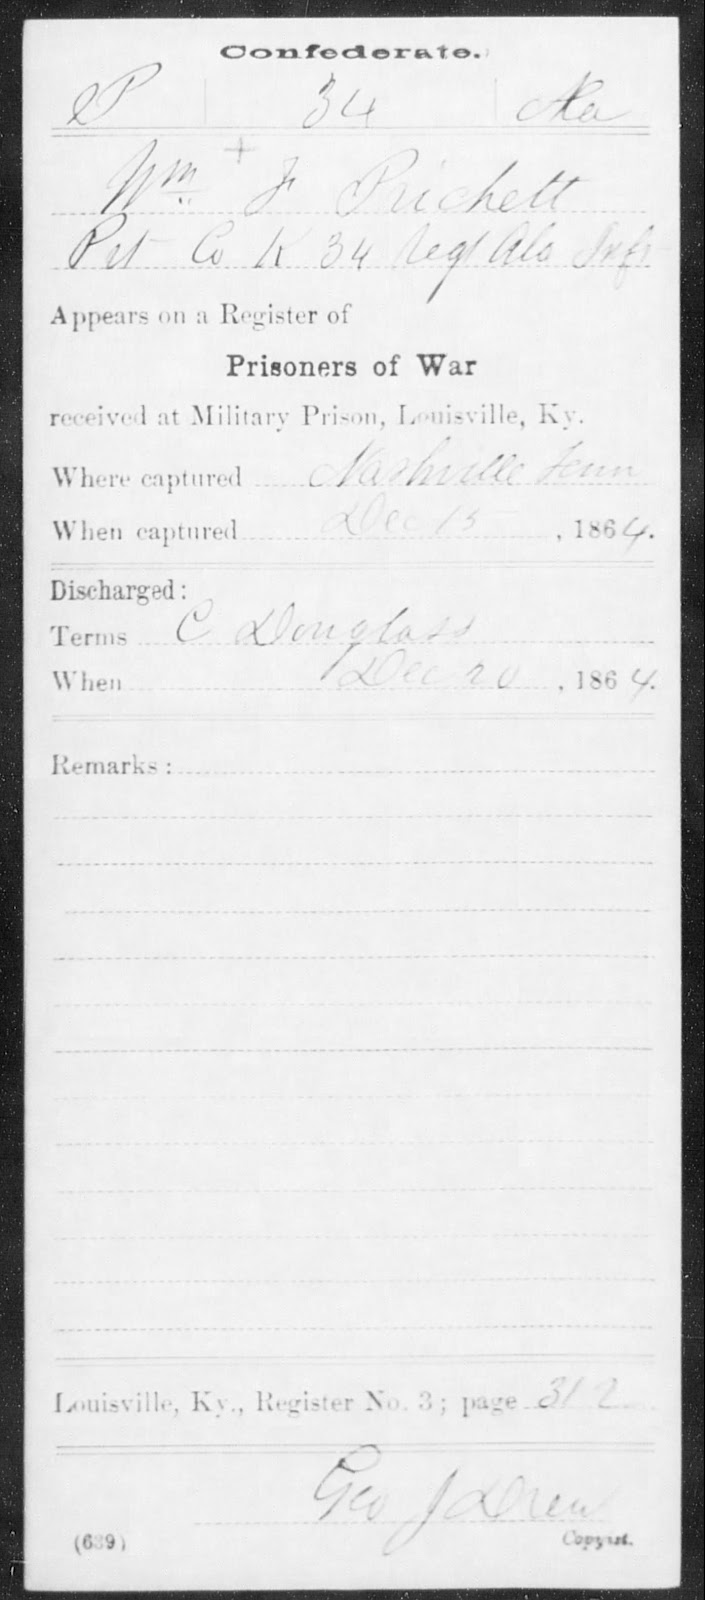 Confederate.
P 34 Ala
+
Wm J Prichett
Pvt Co K 34 Regt Ala Inf
Appears on a Register of
Prisoners of War
received at Military Prison, Louisville, Ky.
Where captured Nashville Tenn
When captured Dec 15, 1864.
Discharged:
Terms C Douglass
When Dec 20, 1864.
Remarks:
Louisville, Ky., Register No. 3; page 312
Geo J Drew
(639) Copyist.